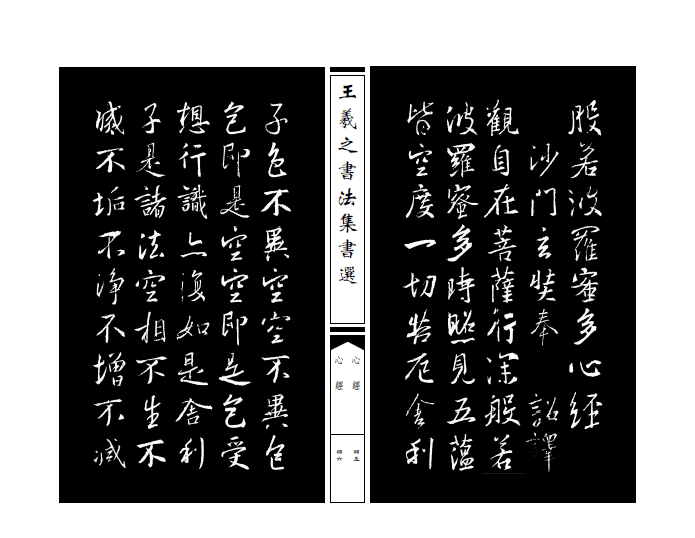 般若波羅蜜多心經
沙門玄奘奉 詔譯
觀自在菩薩行深般若
波羅蜜多時照見五蘊
皆空度一切苦厄舍利
王羲之書法集書選
心經
四五
心經
四六
子色不異空空不異色
色即是空空即是色受
想行識亦復如是舍利
子是諸法空相不生不
滅不垢不淨不增不減